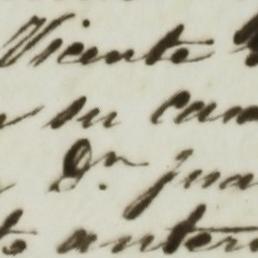 Vicente
su cas
Dn. Jua
te anteri